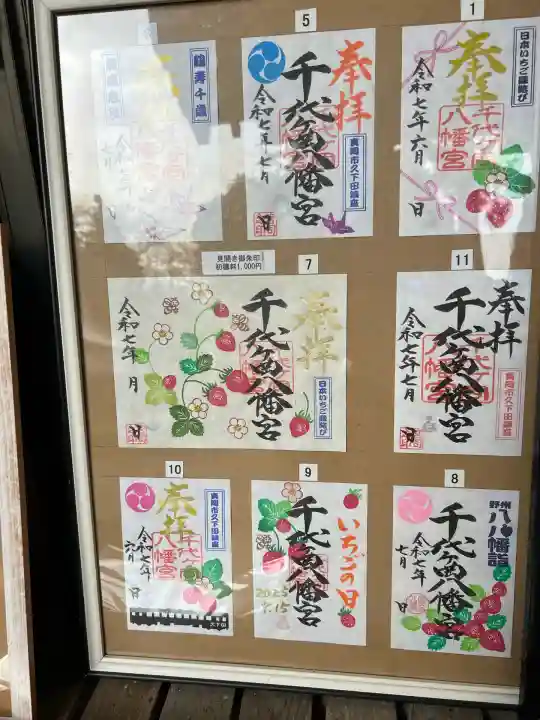 1
奉拝
日本いちご縁結び
千代ヶ岡
八幡宮
令和七年六月 日
5
奉拝
千代ヶ岡八幡宮
真岡市久下田鎮座
令和七年七月 日
鶴寿千歳
7
見開き御朱印
初穂料1,000円
奉拝
千代ヶ岡八幡宮
日本いちご縁結び
令和七年 月 日
11
奉拝
千代ヶ岡八幡宮
真岡市久下田鎮座
令和七年七月 日
10
奉拝
真岡市久下田鎮座
千代ヶ岡
八幡宮
令和七年
六月 日
久下田
9
いちごの日
千代ヶ岡八幡宮
2025
7.15
8
野州
八八幡詣
千代ヶ岡八幡宮
令和七年
七月 日